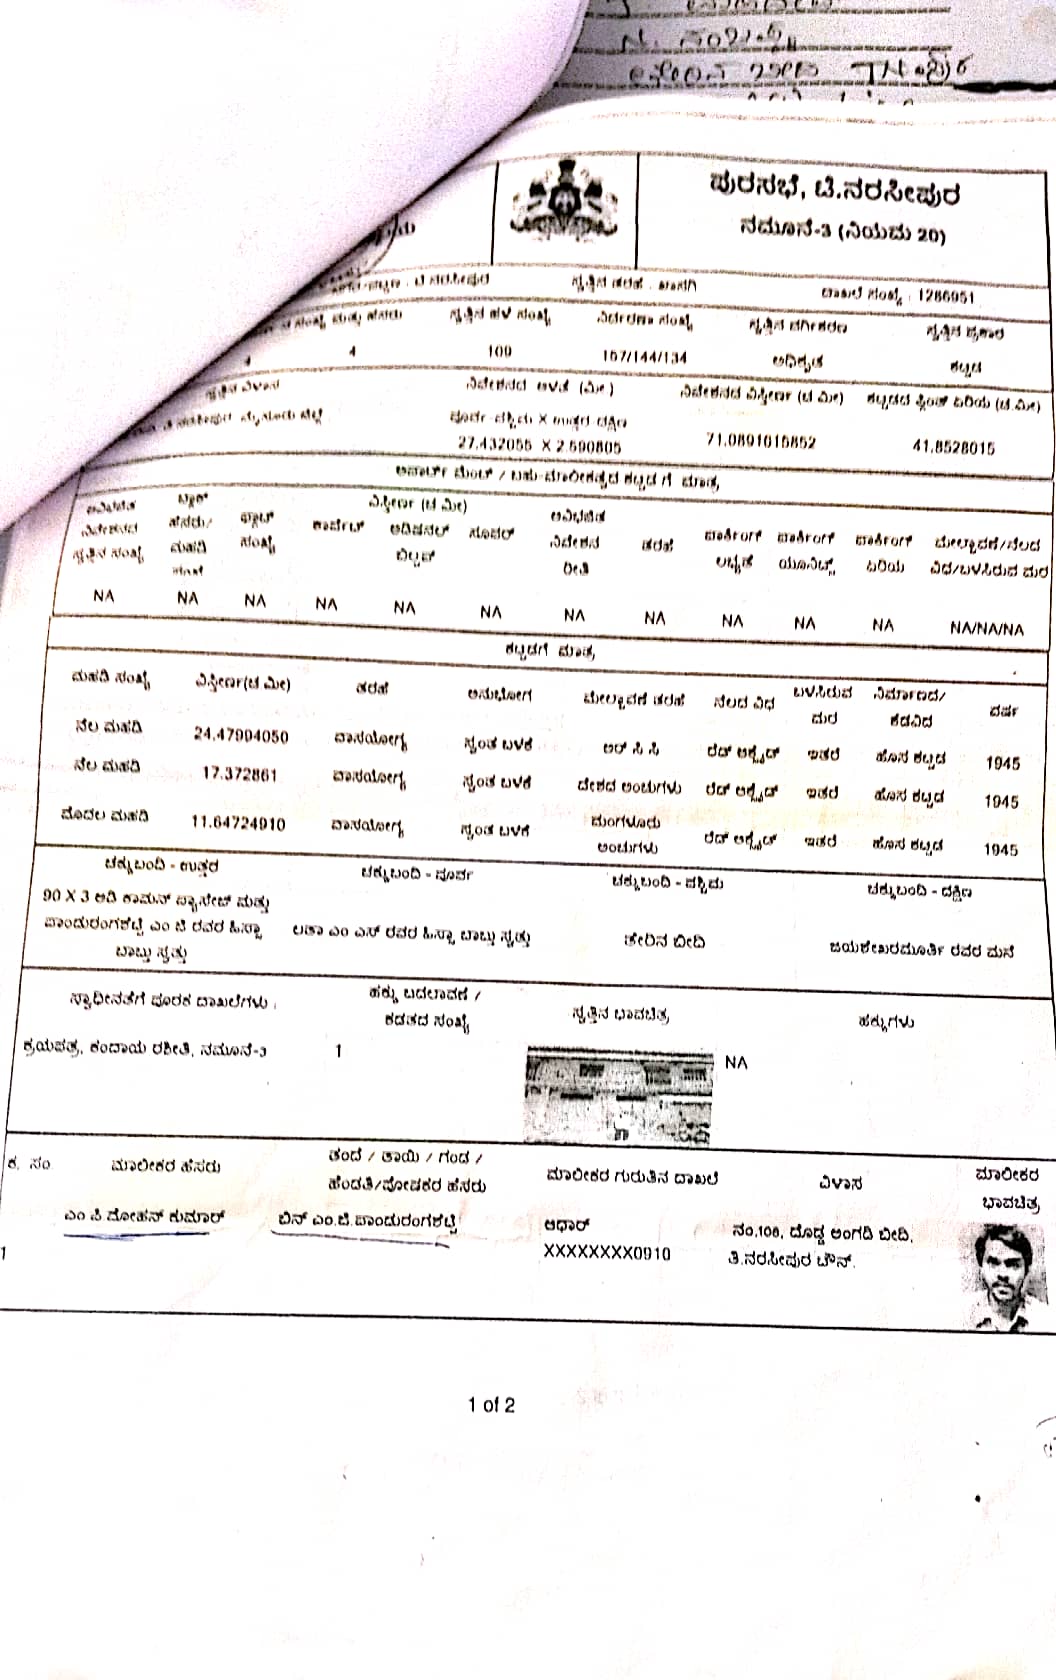 ಪುರಸಭೆ, ಟಿ.ನರಸೀಪುರ
ನಮೂನೆ-3 (ನಿಯಮ 20)
ಟಿ ನರಸೀಪುರ ಸ್ವತ್ತಿನ ತರಹ : ಖಾಸಗಿ ದಾಖಲೆ ಸಂಖ್ಯೆ : 1286951
ಸಂಖ್ಯೆ ಮತ್ತು ಹೆಸರು ಸ್ವತ್ತಿನ ಹಳೆ ಸಂಖ್ಯೆ ನಿರ್ಧರಣಾ ಸಂಖ್ಯೆ ಸ್ವತ್ತಿನ ವರ್ಗೀಕರಣ ಸ್ವತ್ತಿನ ಪ್ರಕಾರ
4 4 109 167/144/134 ಅಧಿಕೃತ ಕಟ್ಟಡ
ಸ್ವತ್ತಿನ ವಿಳಾಸ ನಿವೇಶನದ ಅಳತೆ (ಮೀ) ನಿವೇಶನದ ವಿಸ್ತೀರ್ಣ (ಚ ಮೀ) ಕಟ್ಟಡದ ಪ್ಲಿಂತ್ ಏರಿಯ (ಚ.ಮೀ)
ಪೂರ್ವ ಪಶ್ಚಿಮ X ಉತ್ತರ ದಕ್ಷಿಣ
27.432055 X 2.590805 71.0891015852 41.8528015
ಅಪಾರ್ಟ್ ಮೆಂಟ್ / ಬಹು-ಮಾಲೀಕತ್ವದ ಕಟ್ಟಡ ಗೆ ಮಾತ್ರ
ಅವಿಭಜಿತ ನಿವೇಶನದ ಸ್ವತ್ತಿನ ಸಂಖ್ಯೆ ಬ್ಲಾಕ್ ಹೆಸರು/ ಮಹಡಿ ಸಂಖ್ಯೆ ಫ್ಲಾಟ್ ಸಂಖ್ಯೆ ವಿಸ್ತೀರ್ಣ (ಚ ಮೀ) ಕಾರ್ಪೆಟ್ ಅಡಿಷನಲ್ ಬಿಲ್ಟಪ್ ಸೂಪರ್ ಅವಿಭಜಿತ ನಿವೇಶನ ರೀತಿ ತರಹೆ ಪಾರ್ಕಿಂಗ್ ಲಭ್ಯತೆ ಪಾರ್ಕಿಂಗ್ ಯೂನಿಟ್ಸ್ ಪಾರ್ಕಿಂಗ್ ಏರಿಯ ಮೇಲ್ಛಾವಣಿ/ನೆಲದ ವಿಧ/ಬಳಸಿರುವ ಮರ
NA NA NA NA NA NA NA NA NA NA NA NA/NA/NA
ಕಟ್ಟಡಗೆ ಮಾತ್ರ
ಮಹಡಿ ಸಂಖ್ಯೆ ವಿಸ್ತೀರ್ಣ(ಚ ಮೀ) ತರಹೆ ಅನುಭೋಗ ಮೇಲ್ಛಾವಣಿ ತರಹೆ ನೆಲದ ವಿಧ ಬಳಸಿರುವ ಮರ ನಿರ್ಮಾಣದ/ ಕೆಡವಿದ ವರ್ಷ
ನೆಲ ಮಹಡಿ 24.47994050 ವಾಸಯೋಗ್ಯ ಸ್ವಂತ ಬಳಕೆ ಆರ್ ಸಿ ಸಿ ರೆಡ್ ಆಕ್ಸೈಡ್ ಇತರೆ ಹೊಸ ಕಟ್ಟಡ 1945
ನೆಲ ಮಹಡಿ 17.372861 ವಾಸಯೋಗ್ಯ ಸ್ವಂತ ಬಳಕೆ ದೇಶದ ಅಂಚುಗಳು ರೆಡ್ ಆಕ್ಸೈಡ್ ಇತರೆ ಹೊಸ ಕಟ್ಟಡ 1945
ಮೊದಲ ಮಹಡಿ 11.64724910 ವಾಸಯೋಗ್ಯ ಸ್ವಂತ ಬಳಕೆ ಮಂಗಳೂರು ಅಂಚುಗಳು ರೆಡ್ ಆಕ್ಸೈಡ್ ಇತರೆ ಹೊಸ ಕಟ್ಟಡ 1945
ಚಕ್ಕುಬಂದಿ - ಉತ್ತರ ಚಕ್ಕುಬಂದಿ - ಪೂರ್ವ ಚಕ್ಕುಬಂದಿ - ಪಶ್ಚಿಮ ಚಕ್ಕುಬಂದಿ - ದಕ್ಷಿಣ
90 X 3 ಅಡಿ ಕಾಮನ್ ಪ್ಯಾಸೇಜ್ ಮತ್ತು
ಪಾಂಡುರಂಗಶೆಟ್ಟಿ ಎಂ ಟಿ ರವರ ಹಿಸ್ಸಾ ಲತಾ ಎಂ ಎಸ್ ರವರ ಹಿಸ್ಸಾ ಬಾಬ್ತು ಸ್ವತ್ತು ತೇರಿನ ಬೀದಿ ಜಯಶೇಖರಮೂರ್ತಿ ರವರ ಮನೆ
ಬಾಬ್ತು ಸ್ವತ್ತು
ಸ್ವಾಧೀನತೆಗೆ ಪೂರಕ ದಾಖಲೆಗಳು : ಹಕ್ಕು ಬದಲಾವಣೆ / ಕಡತದ ಸಂಖ್ಯೆ ಸ್ವತ್ತಿನ ಭಾವಚಿತ್ರ ಹಕ್ಕುಗಳು
ಕ್ರಯಪತ್ರ, ಕಂದಾಯ ರಶೀತಿ, ನಮೂನೆ-3 1 NA
ಕ. ಸಂ ಮಾಲೀಕರ ಹೆಸರು ತಂದೆ / ತಾಯಿ / ಗಂಡ / ಹೆಂಡತಿ/ಪೋಷಕರ ಹೆಸರು ಮಾಲೀಕರ ಗುರುತಿನ ದಾಖಲೆ ವಿಳಾಸ ಮಾಲೀಕರ ಭಾವಚಿತ್ರ
ಎಂ ಪಿ ಮೋಹನ್ ಕುಮಾರ್ ಬಿನ್ ಎಂ.ಟಿ.ಪಾಂಡುರಂಗಶೆಟ್ಟಿ ಆಧಾರ್ ನಂ.108, ದೊಡ್ಡ ಅಂಗಡಿ ಬೀದಿ,
1 XXXXXXXX0910 ತಿ.ನರಸೀಪುರ ಟೌನ್.
1 of 2